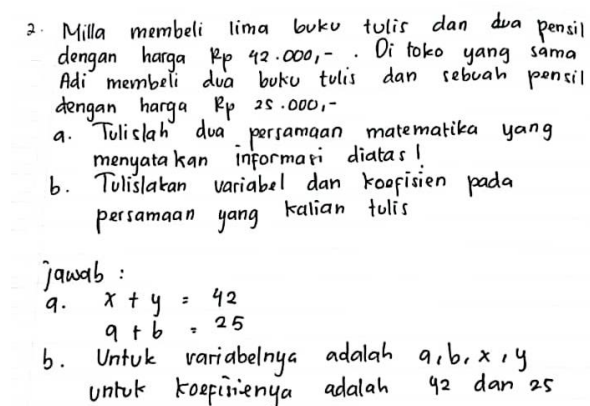 2. Milla membeli lima buku tulis dan dua pensil
dengan harga Rp 42.000,- . Di toko yang sama
Adi membeli dua buku tulis dan sebuah pensil
dengan harga Rp 25.000,-
a. Tulislah dua persamaan matematika yang
menyatakan informasi diatas!
b. Tulislakan variabel dan koefisien pada
persamaan yang kalian tulis
jawab :
a. x + y = 42
a + b = 25
b. Untuk variabelnya adalah a, b, x, y
untuk koefisienya adalah 42 dan 25